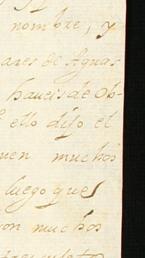 nombre, y
ares de Aguas
haveis de Ob-
ello dijo el
uen muchos
luego que
on muchos